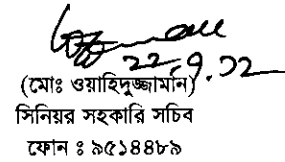 22.9.12
(মোঃ ওয়াহিদুজ্জামান)
সিনিয়র সহকারি সচিব
ফোন ঃ ৯৫১৪৪৮৯